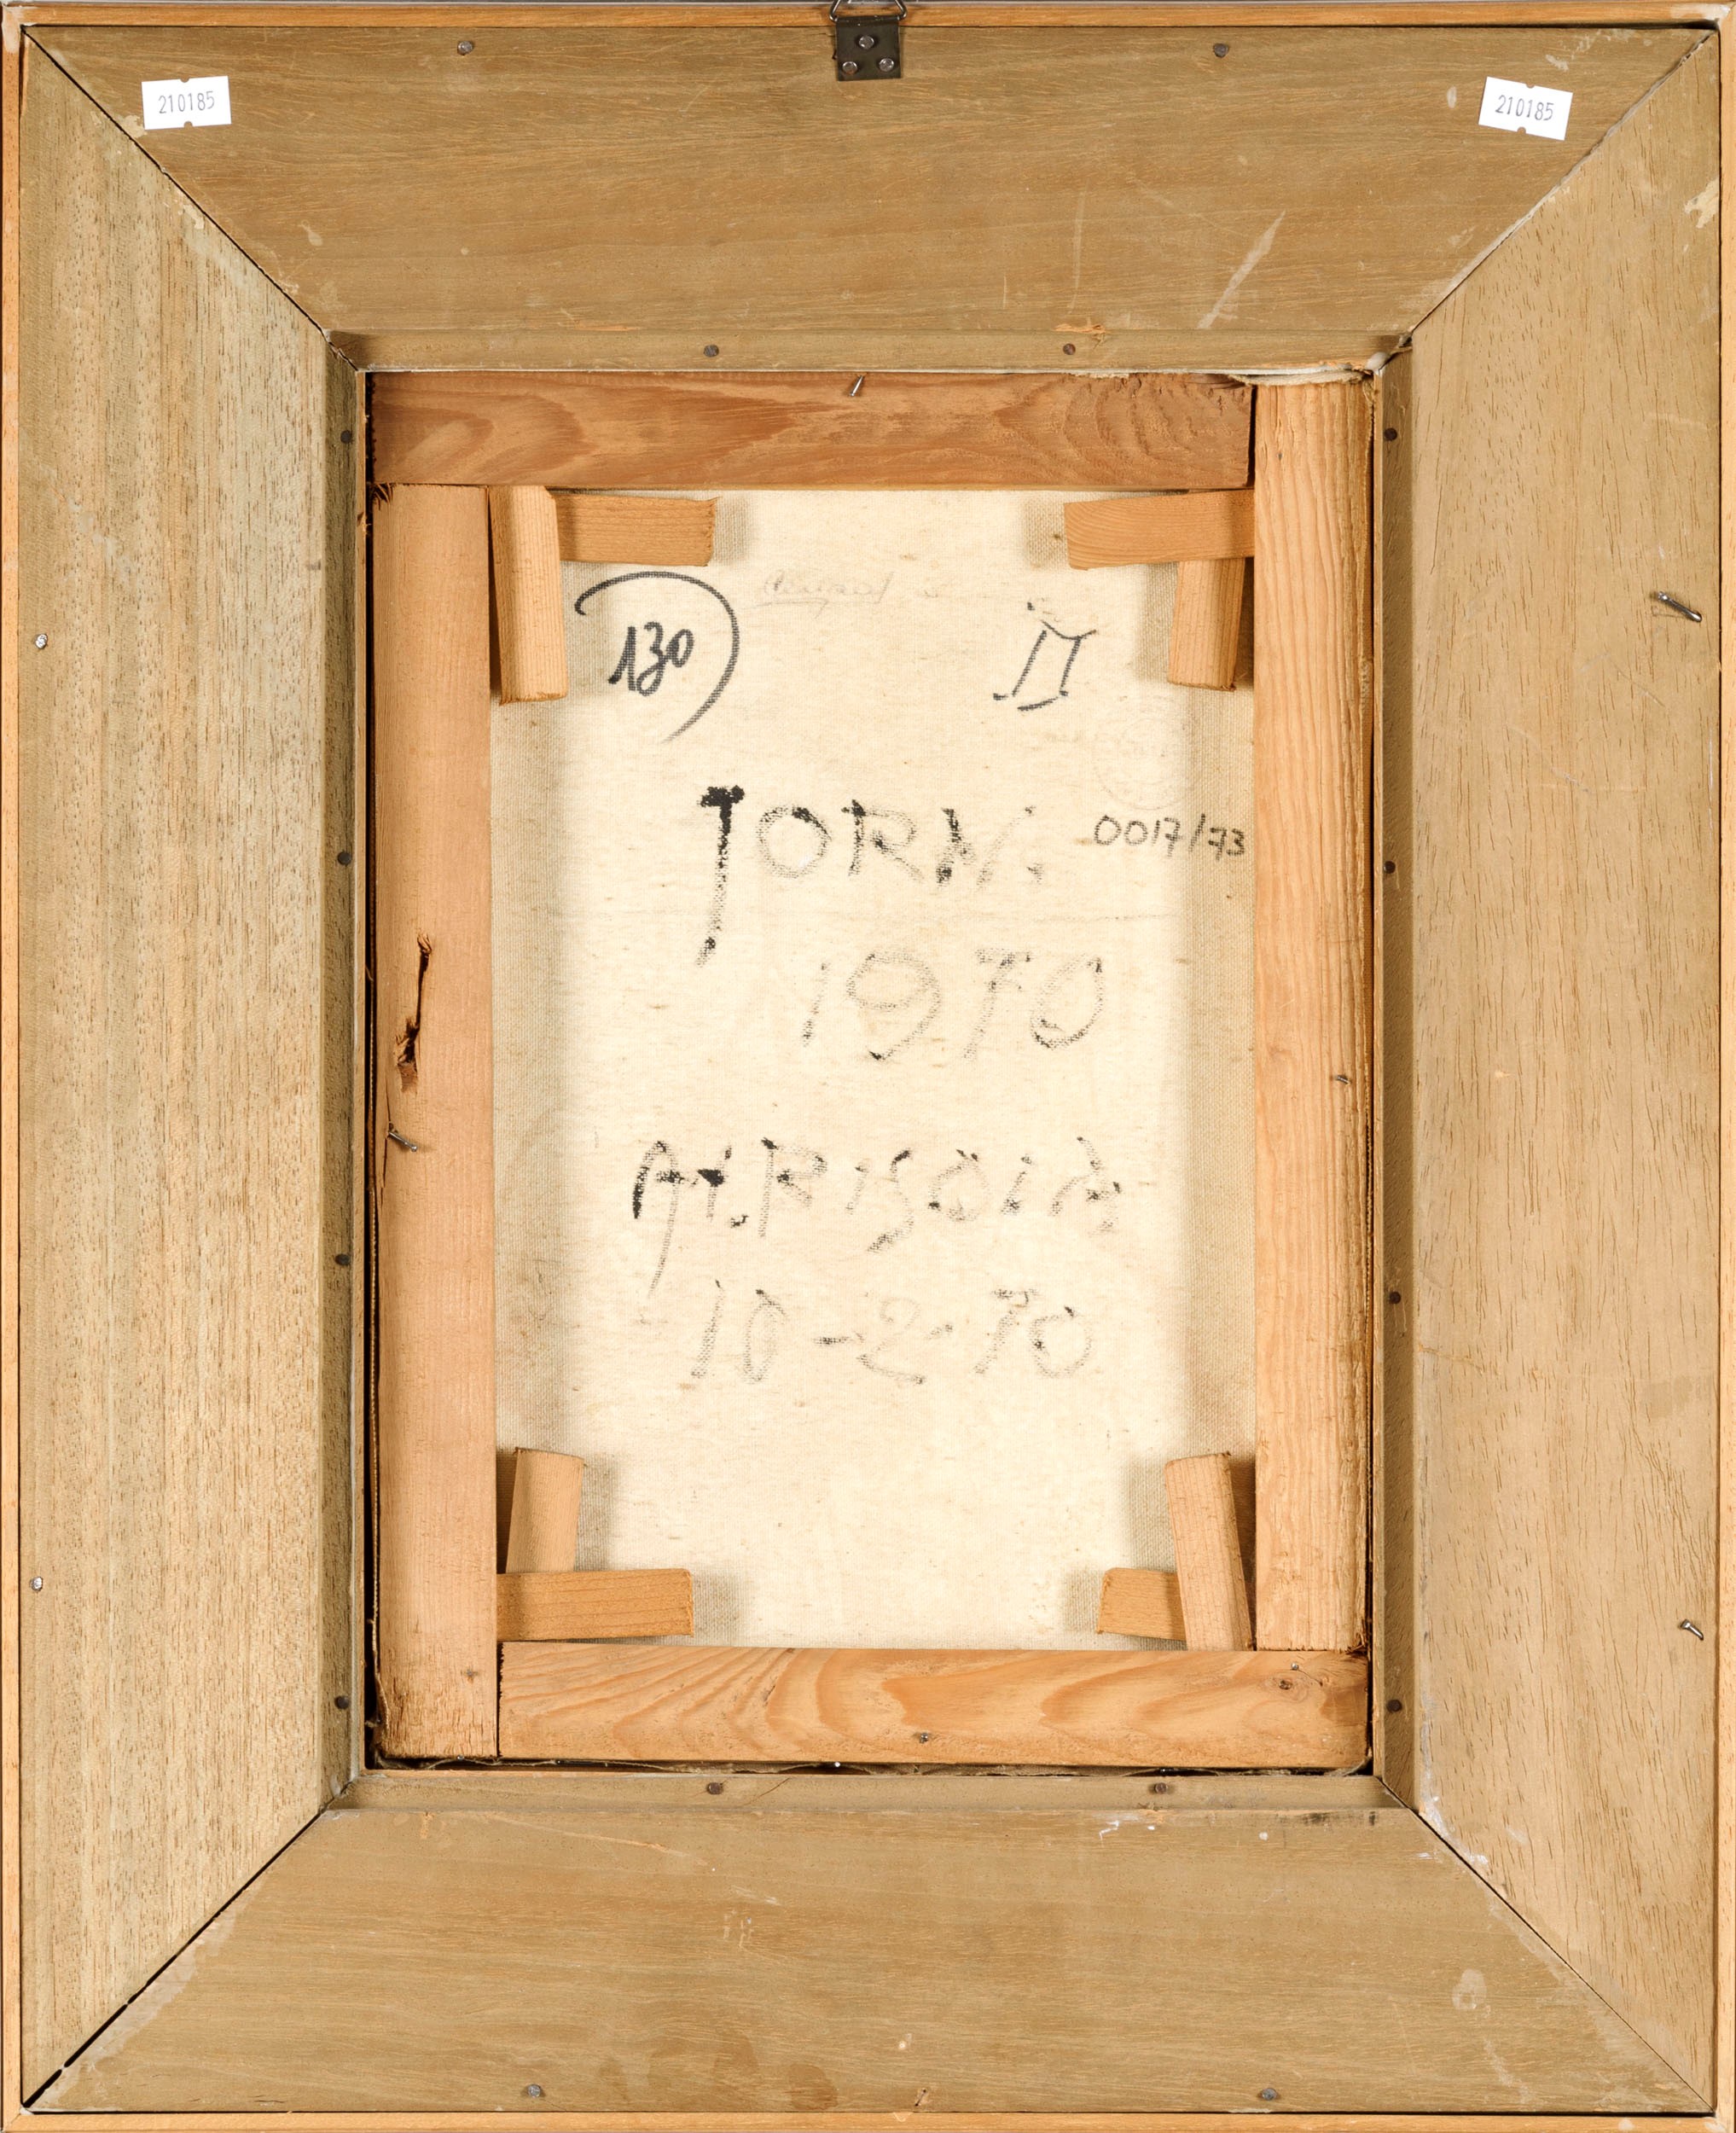 210185
210185
130
II
JORN.
0017/73
1970
10-2-70